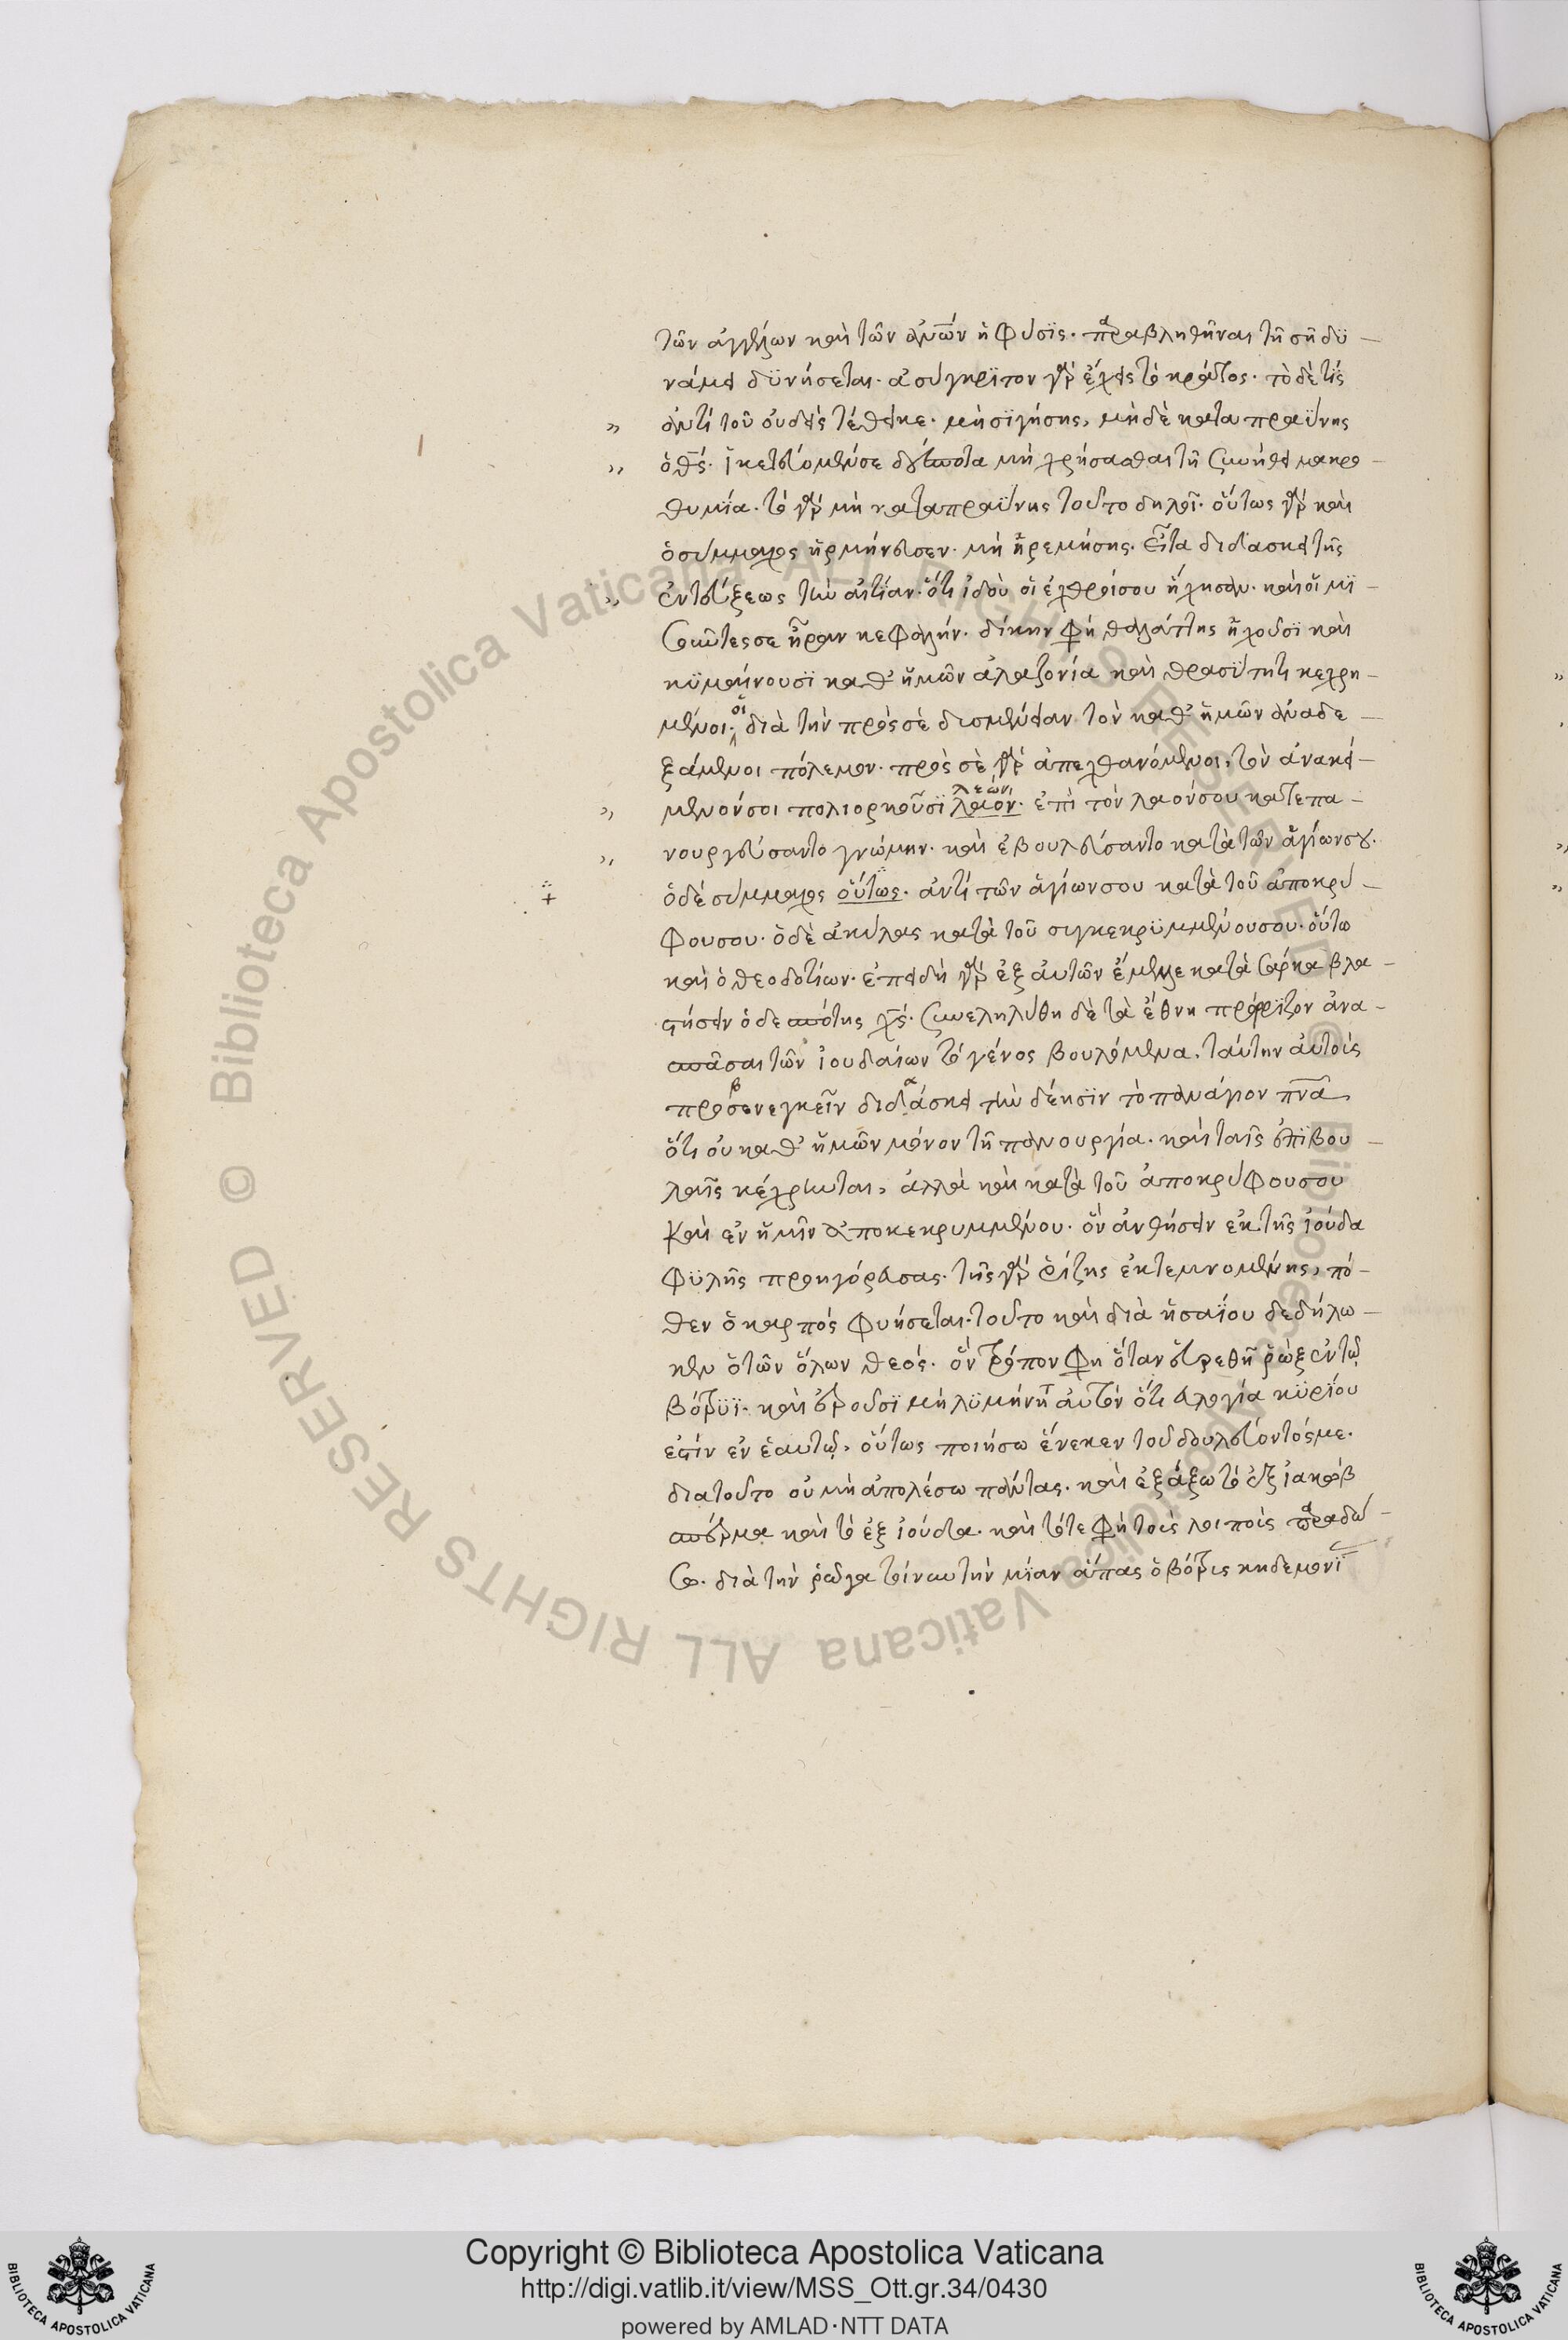 τῶν ἀγγέλων καὶ τῶν ἀν̅ω̅ν ἡ φύσϊς. παραβληθῆναι τῆ σῆ δϋ —
νάμει δϋνήσεται. ἀσύγκρϊτον γὰρ ἔχεις τὸ κράτος. τὸ δὲ τίς
„ ἀντὶ τοῦ οὐδεὶς τέθεικε. μὴ σϊγήσης, μὴ δὲ καταπραΰνης
„ ὁ θ̅ς. ἱκετεύομέν σε δέσποτα μὴ χρήσασθαι τῆ συνήθει μακρο —
θυμία. τὸ γὰρ μὴ καταπραΰνης τοῦτο δηλοῖ. οὕτως γὰρ καὶ
ὁ σύμμαχος ἡρμήνευσεν. μὴ ἠρεμήσης. εἶτα διδάσκει τῆς
„ ἐντεύξεως τὴν αἰτίαν. ὅτι ἰδοὺ οἱ ἐχθροί σου ἤχησαν. καὶ οἱ μϊ —
σοῦντες σε ἦραν κεφαλήν. δίκην φη θαλάττης ἠχοῦσϊ καὶ
κϋμαίνουσϊ καθ' ἡμῶν ἀλαζονία καὶ θρασύτητι κεχρη —
μένοι. οἱ διὰ τὴν πρὸς σὲ δισμένειαν τὸν καθ' ἡμῶν ἀναδε —
ξάμενοι πόλεμον. πρὸς σὲ γὰρ ἀπεχθανόμενοι, τὸν ἀνακεί —
„ μενόν σοι πολιορκοῦσϊ λαιόν. λεών ἐπὶ τὸν λαόν σου κατεπα —
„ νουργεύσαντο γνώμην. καὶ ἐβουλεύσαντο κατὰ τῶν ἁγίων σου.
ὁ δέ σύμμαχος οὕτως. ἀντὶ τῶν ἁγίων σου κατὰ τοῦ ἀποκρύ —
φου σου. ὁ δὲ ἀκύλας κατὰ τοῦ συγκεκρϋμμένου σου. οὕτω
καὶ ὁ θεοδοτίων. ἐπειδὴ γὰρ ἐξ αὐτῶν ἔμελλε κατὰ σάρκα βλα —
στήσειν ὁ δεσπότης χ̅ς. συνεληλύθη δὲ τὰ ἔθνη πρόρϊζον ἀνα —
σπᾶσαι τῶν ἰουδαίων τὸ γένος βουλόμενα. ταύτην αὐτοὶς
προσενεγκεῖν διδάσκει τὴν δέησϊν τὸ πανάγιον π̅ν̅α̅,
ὅτι οὐ καθ' ἡμῶν μόνον τῆ πανουργία. καὶ ταῖς ἐπϊβου —
λαῖς κέχρηνται, ἀλλὰ καὶ κατὰ τοῦ ἀποκρύφου σου
καὶ ἐν ἡμῖν ἀποκεκρυμμένου. ὃν ἀνθήσειν ἐκ τῆς ἰούδα
φϋλῆς προηγόρευσας. τῆς γὰρ ῥίζης ἐκτεμνομένης, πό —
θεν ὁ καρπὸς φυήσεται. τοῦτο καὶ διὰ ἡσαΐου δεδήλω —
κεν ὁ τῶν ὅλων θεός. ὃν τρόπον φη ὅταν εὑρεθῆ ῥὼξ ἐν τῷ
βότρϋϊ. καὶ ἐροῦσϊ μὴ λϋμήνη αὐτὸν ὅτι εὐλογία κϋρίου
ἐστὶν ἐν ἑαυτῷ, οὕτως ποιήσω ἕνεκεν τοῦ δουλεύοντός με.
διατοῦτο οὐ μὴ ἀπολέσω πάντας. καὶ ἐξάξω τὸ ἐξ ἰακὼβ
σπέρμα καὶ τὸ ἐξ ἰούδα. καὶ τότε φη τοὶς λοιποὶς παραδώ —
σω. διὰ τὴν ῥῶγα τοίνυν τὴν μίαν ἅπας ὁ βότρυς κηδεμονί
Copyright © Biblioteca Apostolica Vaticana
http://digi.vatlib.it/view/MSS_Ott.gr.34/0430
powered by AMLAD·NTT DATA